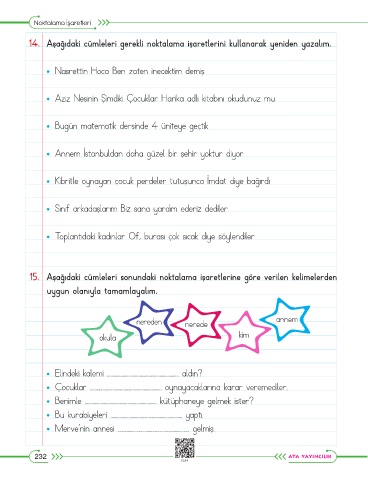 Noktalama İşaretleri
14. Aşağıdaki cümleleri gerekli noktalama işaretlerini kullanarak yeniden yazalım.
• Nasrettin Hoca Ben zaten inecektim demiş
• Aziz Nesinin Şimdiki Çocuklar Harika adlı kitabını okudunuz mu
• Bugün matematik dersinde 4 üniteye geçtik
• Annem İstanbuldan daha güzel bir şehir yoktur diyor
• Kibritle oynayan çocuk perdeler tutuşunca İmdat diye bağırdı
• Sınıf arkadaşlarım Biz sana yardım ederiz dediler
• Toplantıdaki kadınlar Of, burası çok sıcak diye söylendiler
15. Aşağıdaki cümleleri sonundaki noktalama işaretlerine göre verilen kelimelerden
uygun olanıyla tamamlayalım.
okula
nereden
nerede
kim
annem
• Elindeki kalemi ........................ aldın?
• Çocuklar ........................ oynayacaklarına karar veremediler.
• Benimle ........................ kütüphaneye gelmek ister?
• Bu kurabiyeleri ........................ yaptı.
• Merve'nin annesi ........................ gelmiş.
232
ATA YAYINCILIK